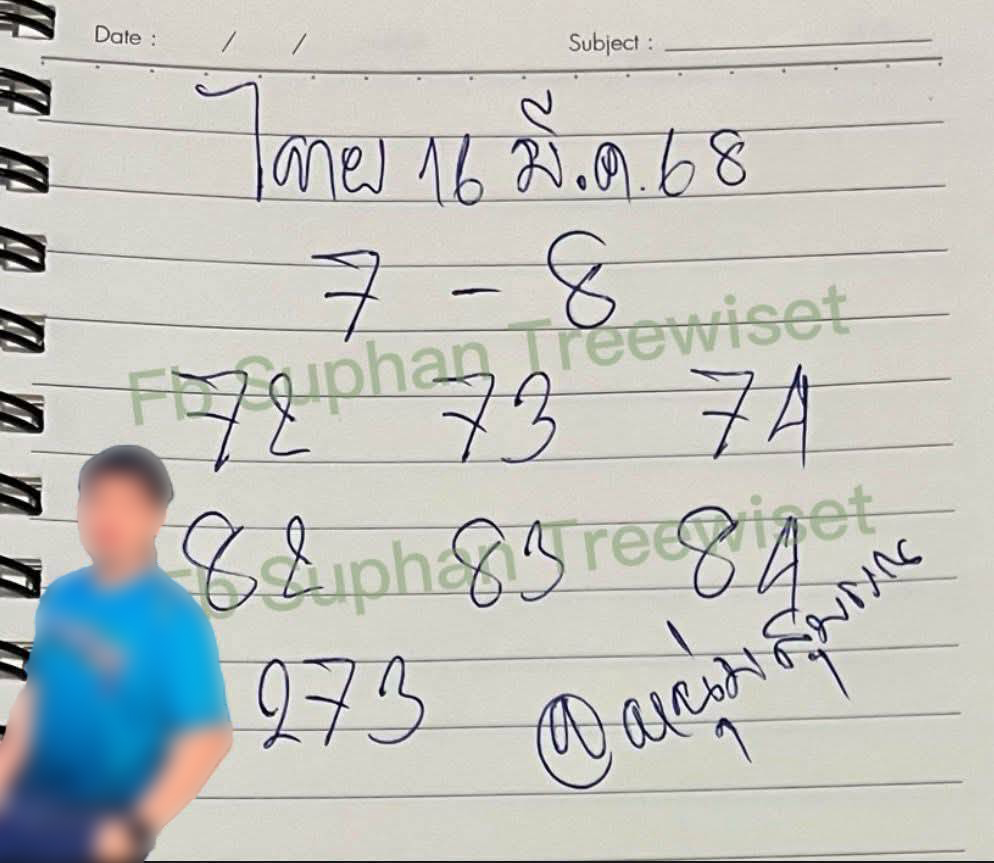 Date : / / Subject :
ไทย 16 มี.ค. 68
7 - 8
Fb Suphan Treewiset
72 73 74
82 83 84
Fb Suphan Treewiset
273